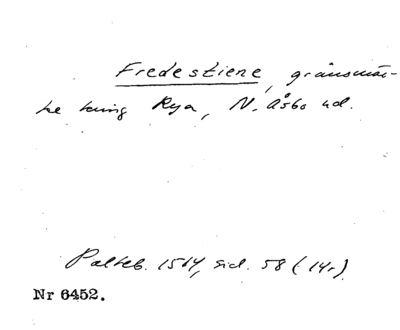 Fredestiene, gränsmär-
ke kring Rya, N. Åsbo hd.
Palteb. 1514, sid. 58 (14r).
Nr 6452.